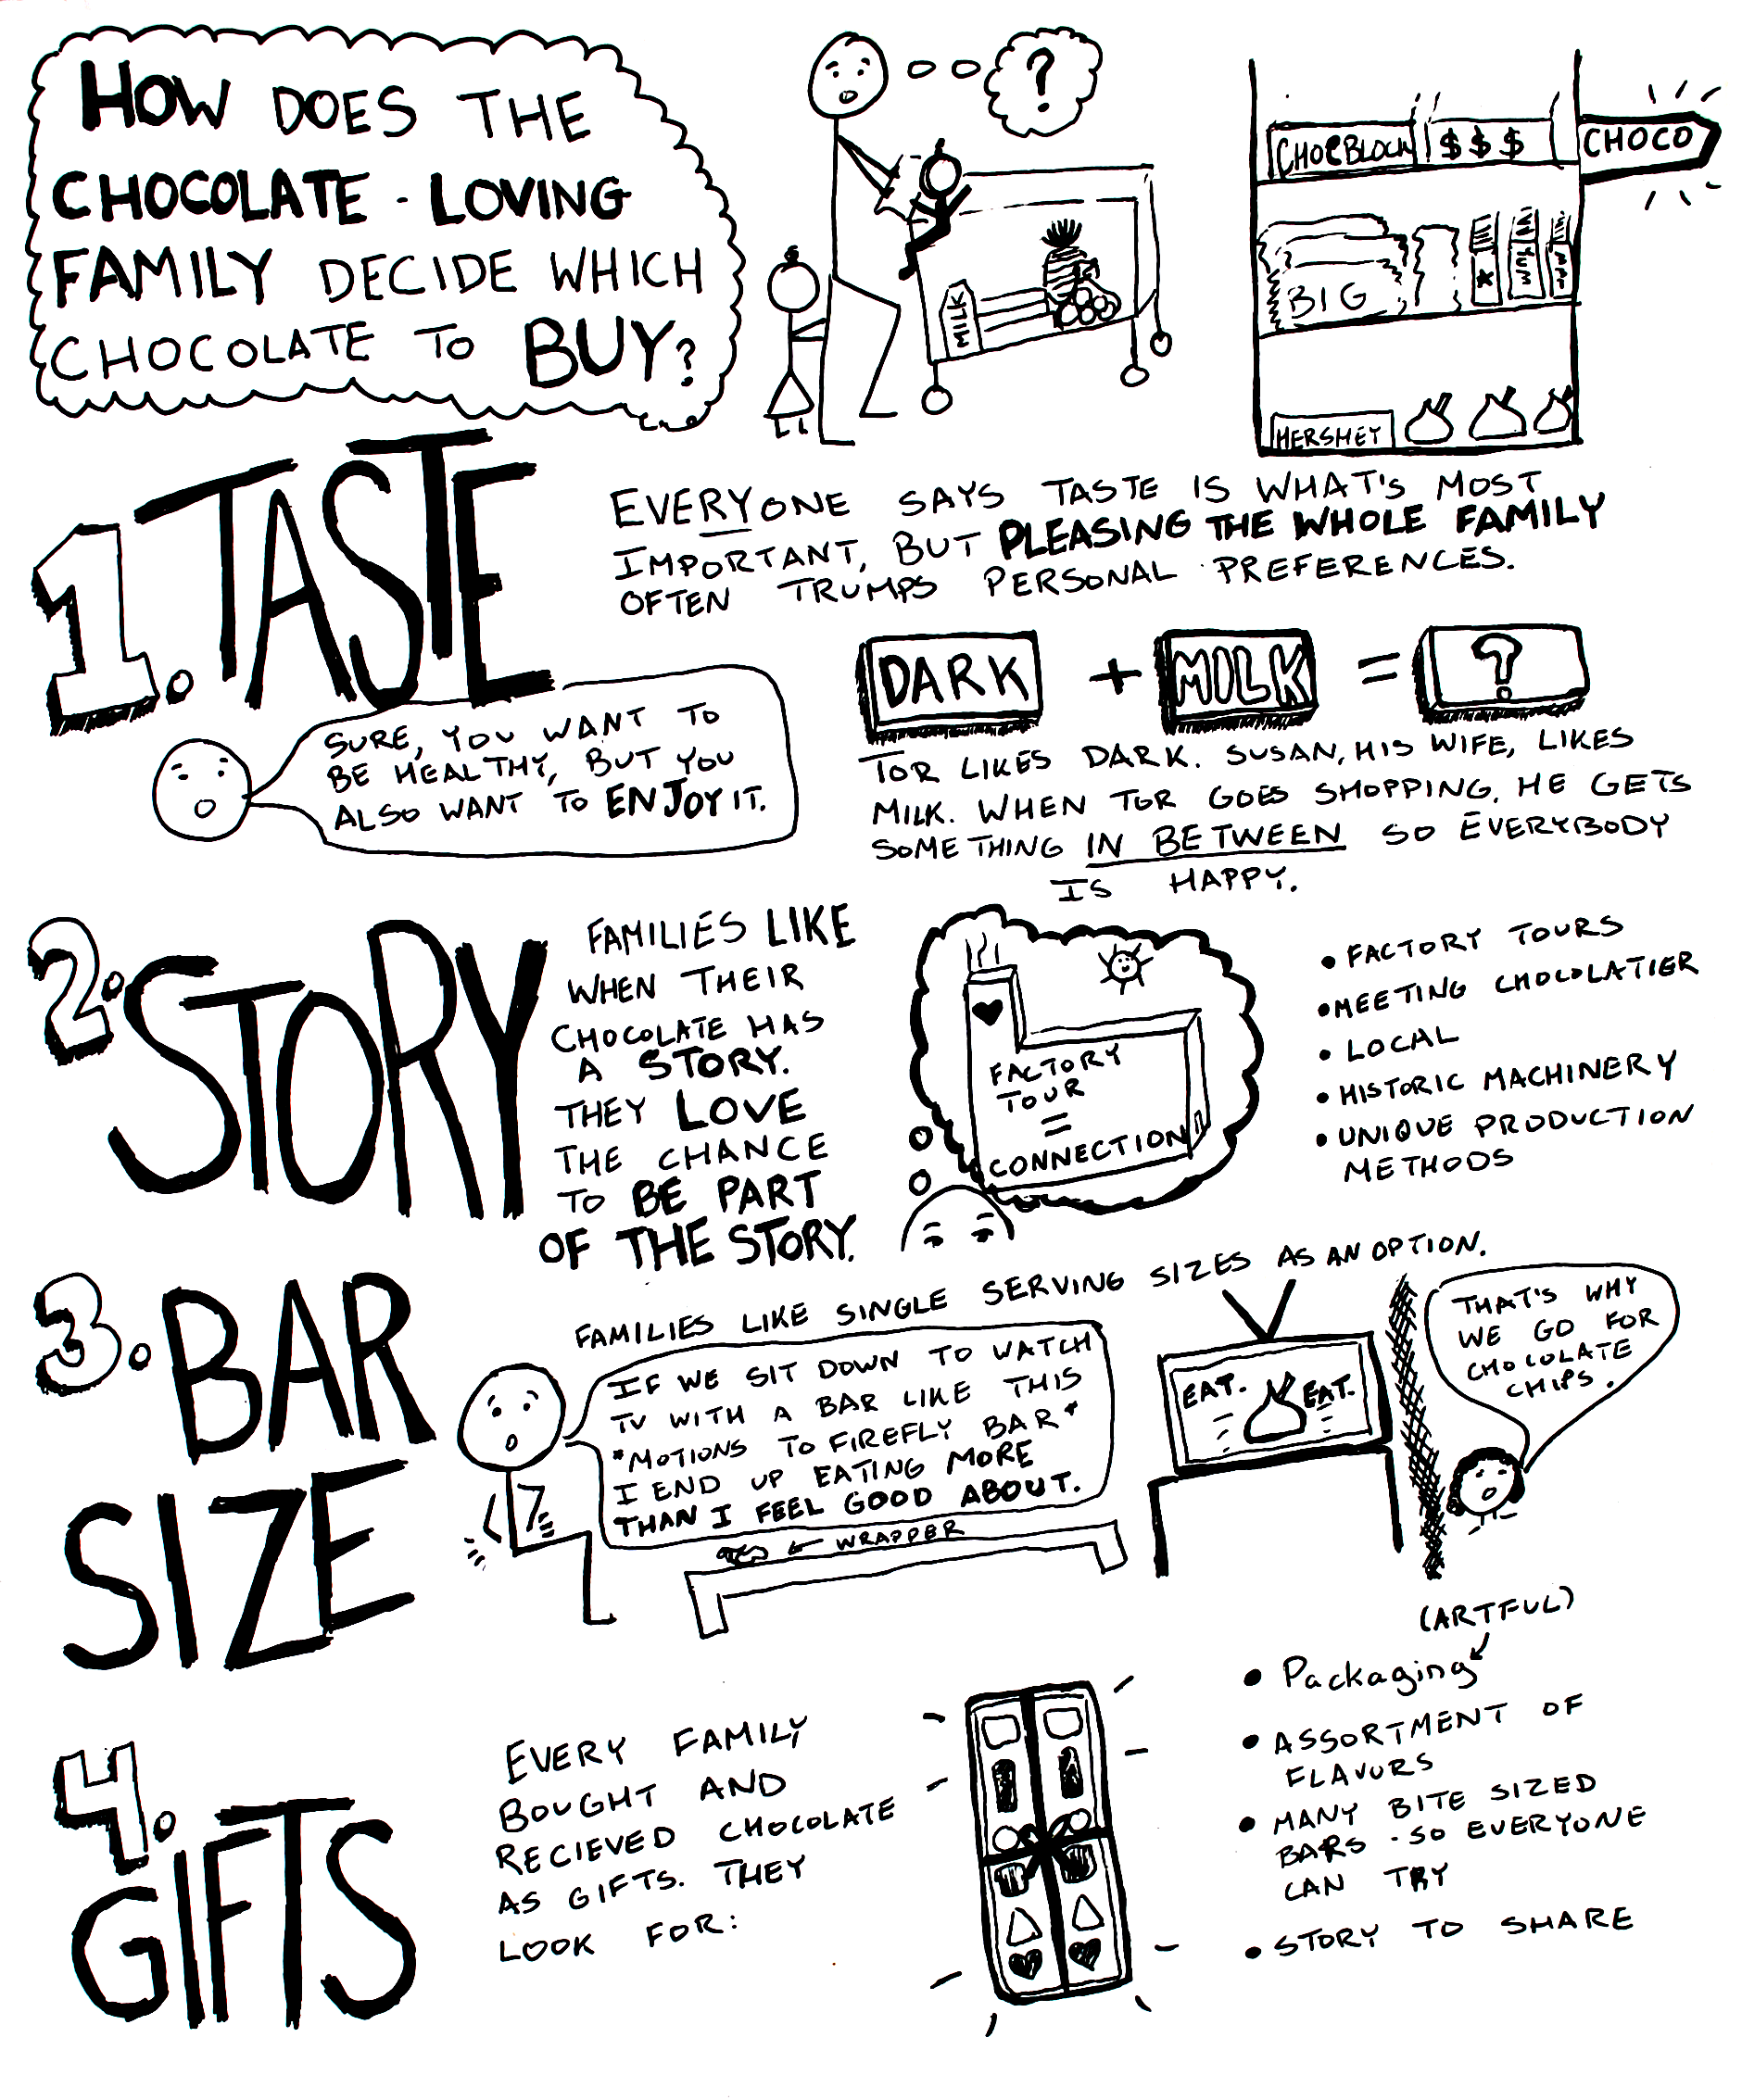 HOW DOES THE
CHOCOLATE - LOVING
FAMILY DECIDE WHICH
CHOCOLATE TO BUY?
?
MILK
$$$
CHOCO
BIG
YUM
HERSHEY
1. TASTE
EVERYONE SAYS TASTE IS WHAT'S MOST
IMPORTANT, BUT PLEASING THE WHOLE FAMILY
OFTEN TRUMPS PERSONAL PREFERENCES.
SURE, YOU WANT TO
BE HEALTHY, BUT YOU
ALSO WANT TO ENJOY IT.
DARK + MILK = ?
TOR LIKES DARK. SUSAN, HIS WIFE, LIKES
MILK. WHEN TOR GOES SHOPPING, HE GETS
SOMETHING IN BETWEEN SO EVERYBODY
IS HAPPY.
2. STORY
FAMILIES LIKE
WHEN THEIR
CHOCOLATE HAS
A STORY.
THEY LOVE
THE CHANCE
TO BE PART
OF THE STORY.
FACTORY
TOUR
=
CONNECTION
• FACTORY TOURS
• MEETING CHOCOLATIER
• LOCAL
• HISTORIC MACHINERY
• UNIQUE PRODUCTION
METHODS
3. BAR
SIZE
FAMILIES LIKE SINGLE SERVING SIZES AS AN OPTION.
IF WE SIT DOWN TO WATCH
TV WITH A BAR LIKE THIS
*MOTIONS TO FIREFLY BAR*
I END UP EATING MORE
THAN I FEEL GOOD ABOUT.
← WRAPPER
EAT. EAT.
THAT'S WHY
WE GO FOR
CHOCOLATE
CHIPS.
4.
GIFTS
EVERY FAMILY
BOUGHT AND
RECIEVED CHOCOLATE
AS GIFTS. THEY
LOOK FOR:
(ARTFUL)
• Packaging
• ASSORTMENT OF
FLAVORS
• MANY BITE SIZED
BARS - SO EVERYONE
CAN TRY
• STORY TO SHARE